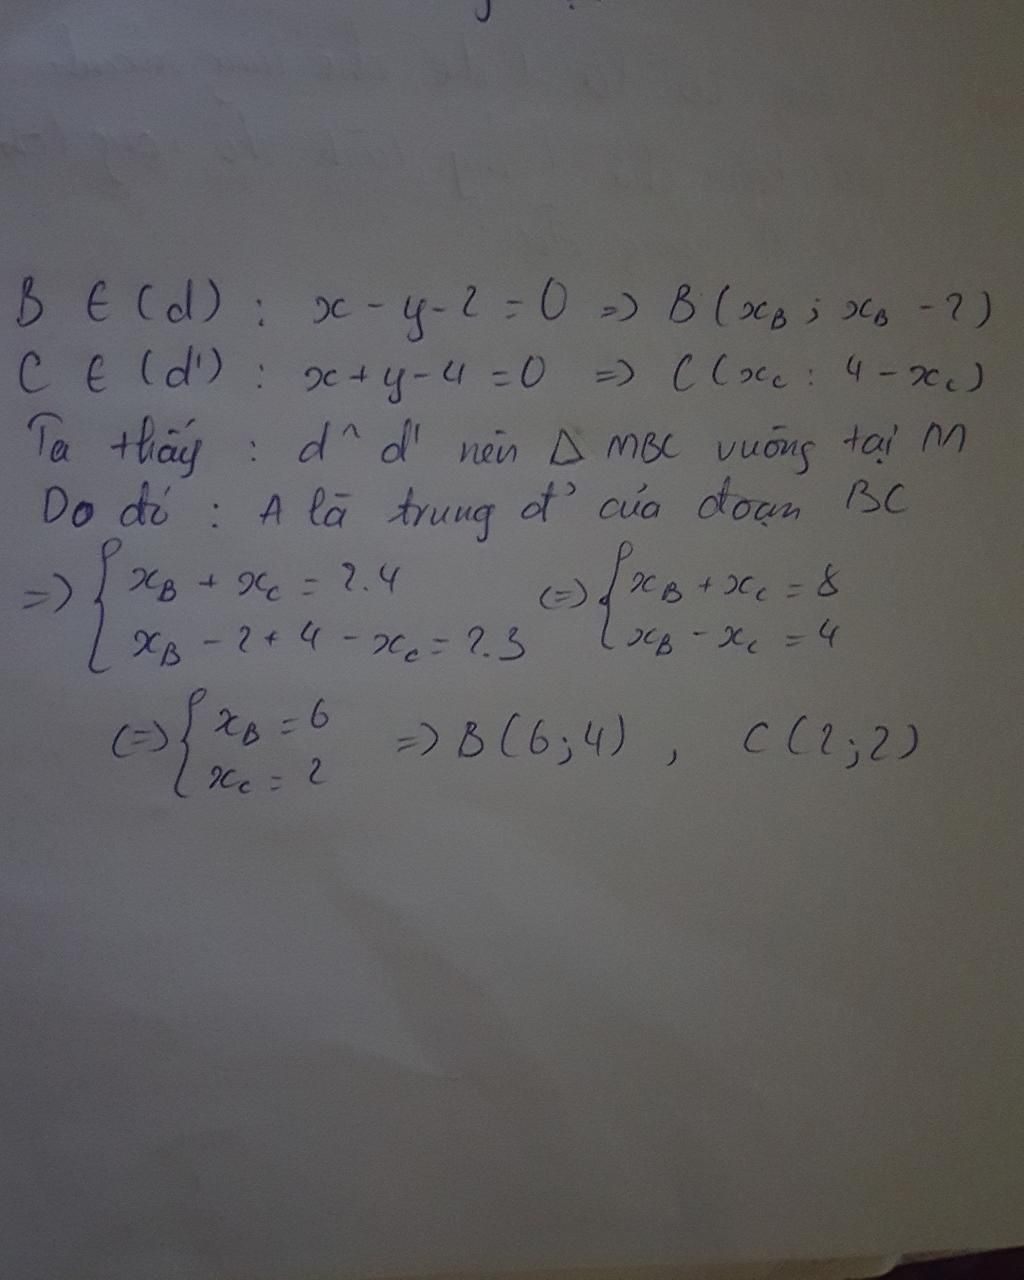 B ∈ (d) : x - y - 2 = 0 => B (x_B ; x_B - 2)
C ∈ (d') : x + y - 4 = 0 => C (x_C : 4 - x_C)
Ta thấy : d ^ d' nên Δ MBC vuông tại M
Do đó : A là trung đ' của đoạn BC
=> { x_B + x_C = 2.4 <=> { x_B + x_C = 8
x_B - 2 + 4 - x_C = 2.3 x_B - x_C = 4
<=> { x_B = 6 => B (6;4) , C (2;2)
x_C = 2